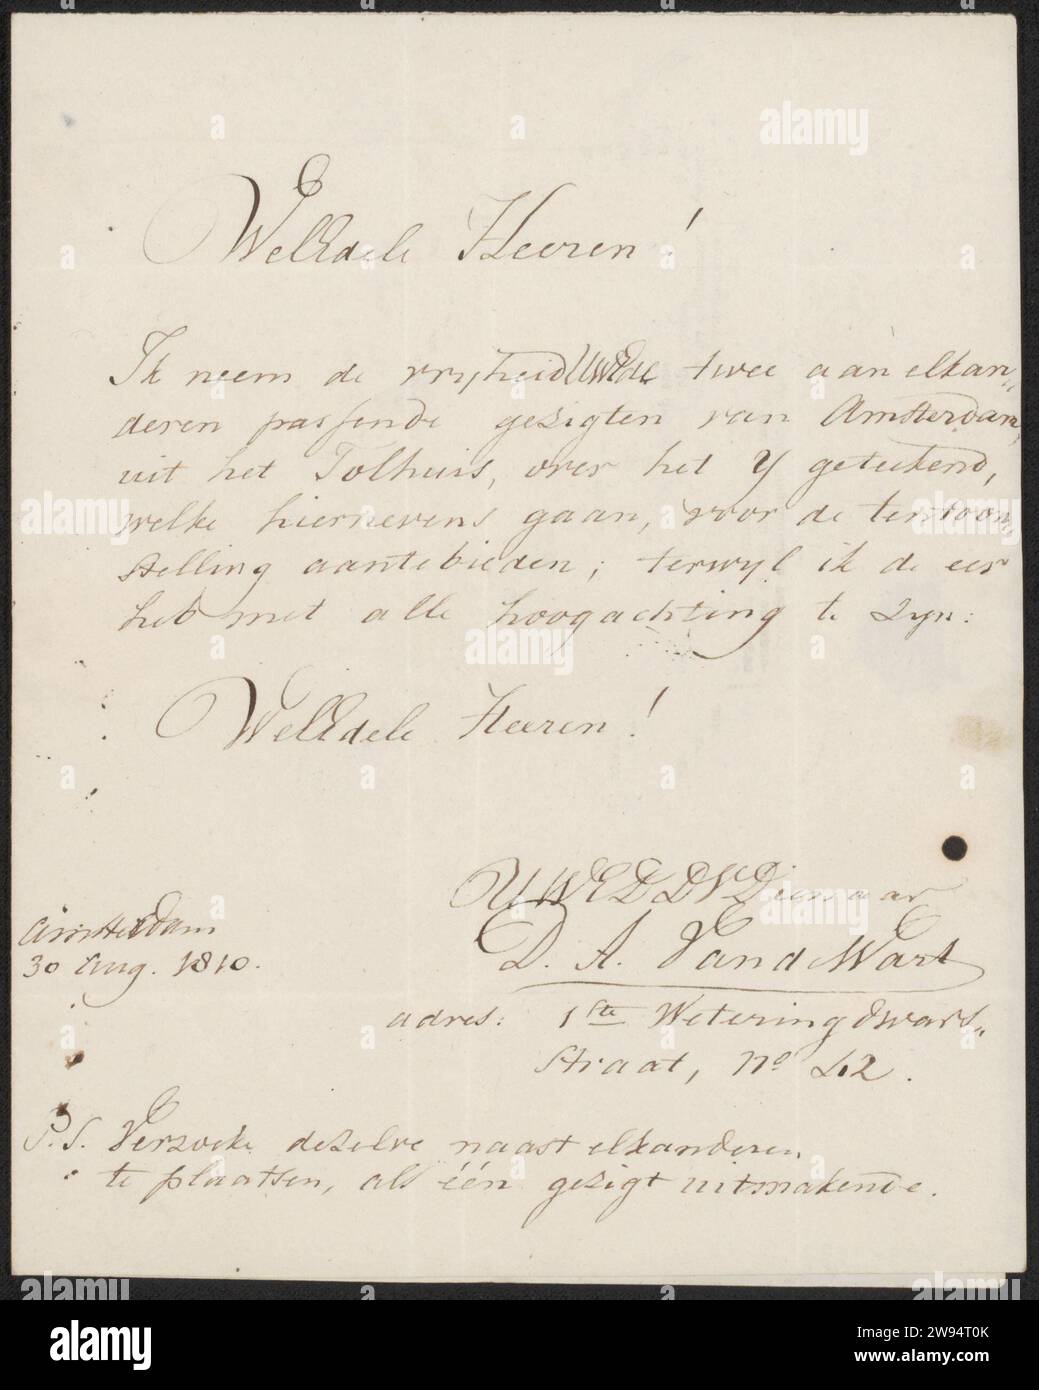 WelEdele Heeren!
Ik neem de vryheid UwEde twee aan elkan„
deren passende gezigten van Amsterdam,
uit het Tolhuis, over het Y geteekend,
welke hiernevens gaan, voor de tentoon„
stelling aantebieden; terwyl ik de eer
heb met alle hoogachting te zyn:
WelEdele Heeren!
UWEDDWDienaar
D. A. Van de Wart
Amsterdam
30 Aug. 1810.
adres: 1ste Weteringdwars„
straat, No 42.
P.S. Verzoeke dezelve naast elkanderen
te plaatsen, als één gezigt uitmakende.
alamy
Image ID: 2W94T0K
www.alamy.com